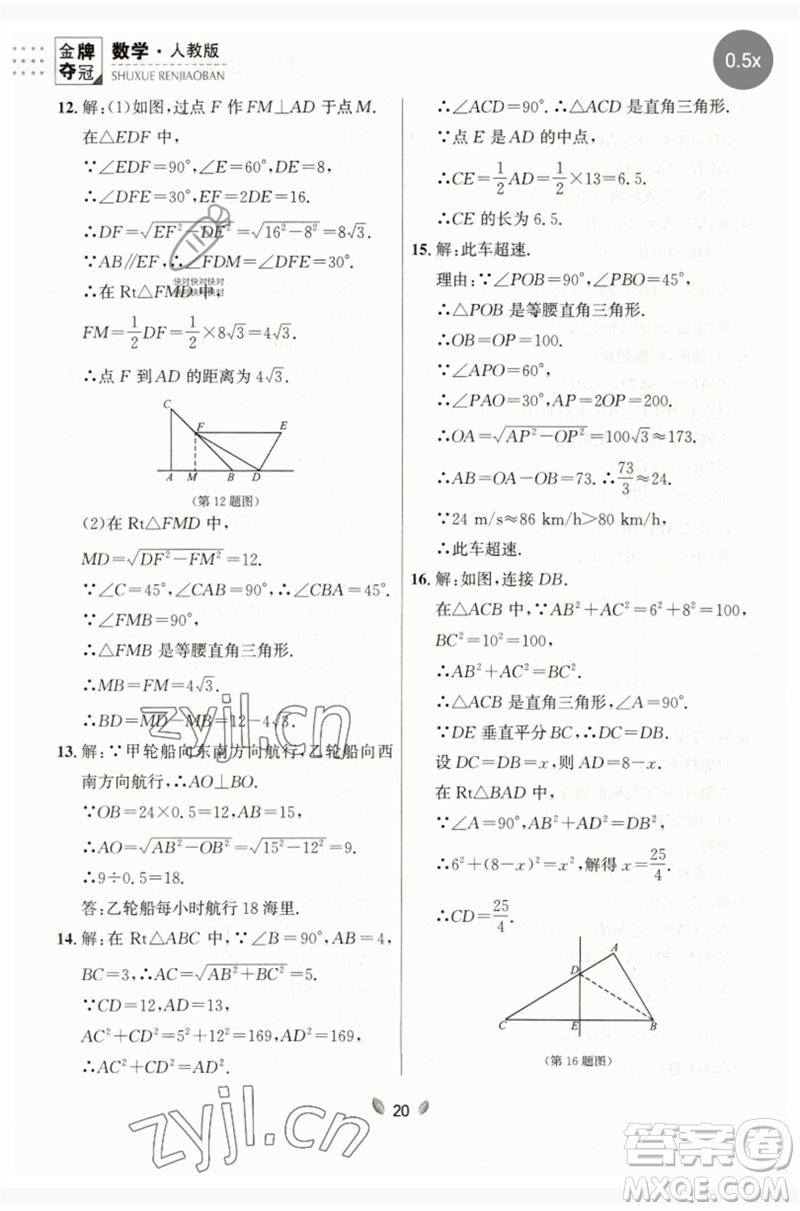 金牌夺冠 数学·人教版
SHUXUE RENJIAOBAN
0.5x
12. 解:(1)如图,过点 F 作 FM⊥AD 于点 M.
在△EDF 中,
∵∠EDF=90°,∠E=60°,DE=8,
∴∠DFE=30°,EF=2DE=16.
∴DF=√(EF²-DE²)=√(16²-8²)=8√3.
∵AB∥EF,∴∠FDM=∠DFE=30°.
快对快对快对
快对快对快对
∴在 Rt△FMD 中,
FM=1/2DF=1/2×8√3=4√3.
∴点 F 到 AD 的距离为 4√3.
C F E
A M B D
(第 12 题图)
(2)在 Rt△FMD 中,
MD=√(DF²-FM²)=12.
∵∠C=45°,∠CAB=90°,∴∠CBA=45°.
∵∠FMB=90°,
∴△FMB 是等腰直角三角形.
∴MB=FM=4√3.
∴BD=MD-MB=12-4√3.
13. 解:∵甲轮船向东南方向航行,乙轮船向西
南方向航行,∴AO⊥BO.
∵OB=24×0.5=12,AB=15,
∴AO=√(AB²-OB²)=√(15²-12²)=9.
∴9÷0.5=18.
答:乙轮船每小时航行 18 海里.
14. 解:在 Rt△ABC 中,∵∠B=90°,AB=4,
BC=3,∴AC=√(AB²+BC²)=5.
∵CD=12,AD=13,
AC²+CD²=5²+12²=169,AD²=169,
∴AC²+CD²=AD².
∴∠ACD=90°.∴△ACD 是直角三角形.
∵点 E 是 AD 的中点,
∴CE=1/2AD=1/2×13=6.5.
∴CE 的长为 6.5.
15. 解:此车超速.
理由:∵∠POB=90°,∠PBO=45°,
∴△POB 是等腰直角三角形.
∴OB=OP=100.
∵∠APO=60°,
∴∠PAO=30°,AP=2OP=200.
∴OA=√(AP²-OP²)=100√3≈173.
∴AB=OA-OB=73.∴73/3≈24.
∵24 m/s≈86 km/h>80 km/h,
∴此车超速.
16. 解:如图,连接 DB.
在△ACB 中,∵AB²+AC²=6²+8²=100,
BC²=10²=100,
∴AB²+AC²=BC².
∴△ACB 是直角三角形,∴∠A=90°.
∵DE 垂直平分 BC,∴DC=DB.
设 DC=DB=x,则 AD=8-x.
在 Rt△BAD 中,
∵∠A=90°,∴AB²+AD²=DB².
∴6²+(8-x)²=x²,解得 x=25/4.
∴CD=25/4.
A
D
C E B
(第 16 题图)
20
zyjl.cn
zyjl.cn
答案卷
MXQE.COM